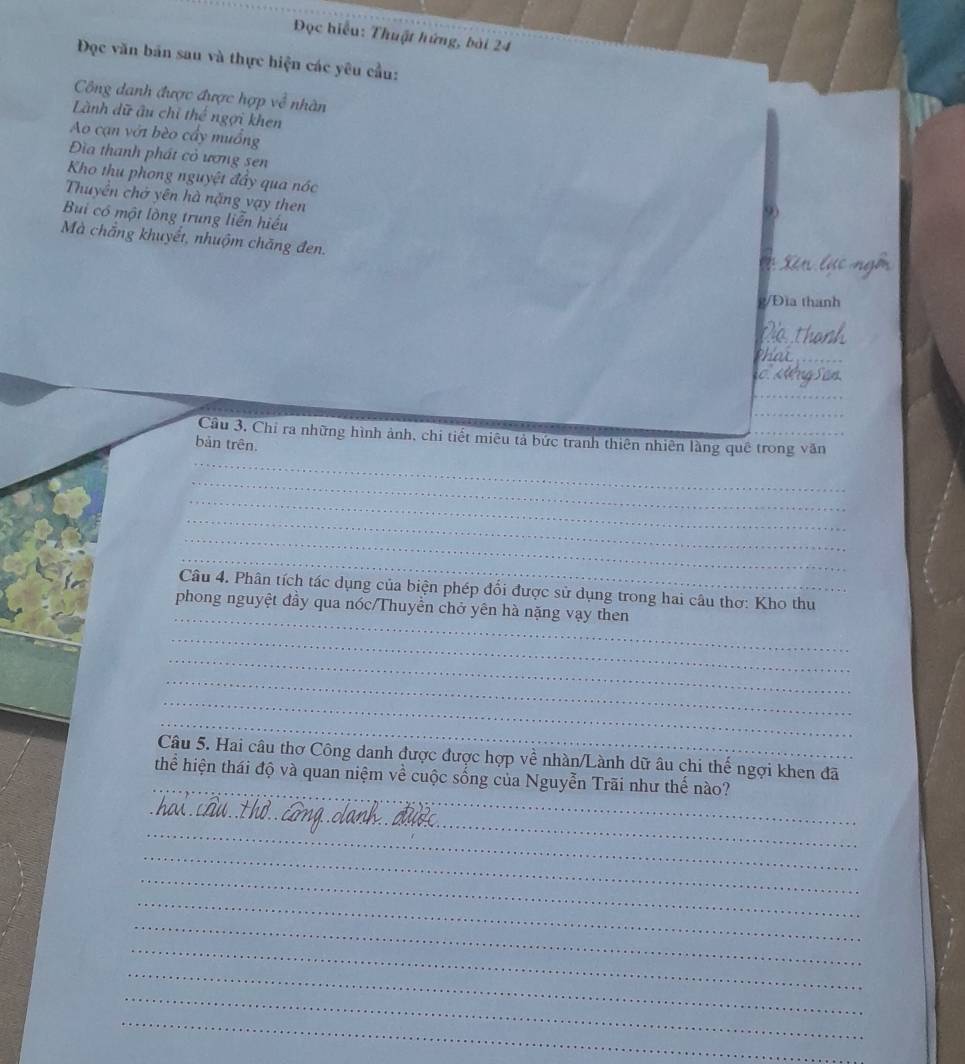 Đọc hiểu: Thuật hứng, bài 24
Đọc văn bản sau và thực hiện các yêu cầu:
Công danh được được hợp về nhàn
Lành dữ âu chi thế ngợi khen
Ao cạn vớt bèo cấy muống
Đìa thanh phát cỏ ương sen
Kho thu phong nguyệt đầy qua nóc
Thuyền chở yên hà nặng vạy then
Bui có một lòng trung liễn hiếu
Mà chẳng khuyết, nhuộm chăng đen.
9)
sen lục ngôn
g/Đìa thanh
Đìa thanh
phát
cỏ ương sen
Câu 3. Chỉ ra những hình ảnh, chi tiết miêu tả bức tranh thiên nhiên làng quê trong văn
bản trên.
Câu 4. Phân tích tác dụng của biện phép đối được sử dụng trong hai câu thơ: Kho thu
phong nguyệt đầy qua nóc/Thuyền chở yên hà nặng vạy then
Câu 5. Hai câu thơ Công danh được được hợp về nhàn/Lành dữ âu chi thế ngợi khen đã
thể hiện thái độ và quan niệm về cuộc sống của Nguyễn Trãi như thế nào?
hai câu thơ công danh được